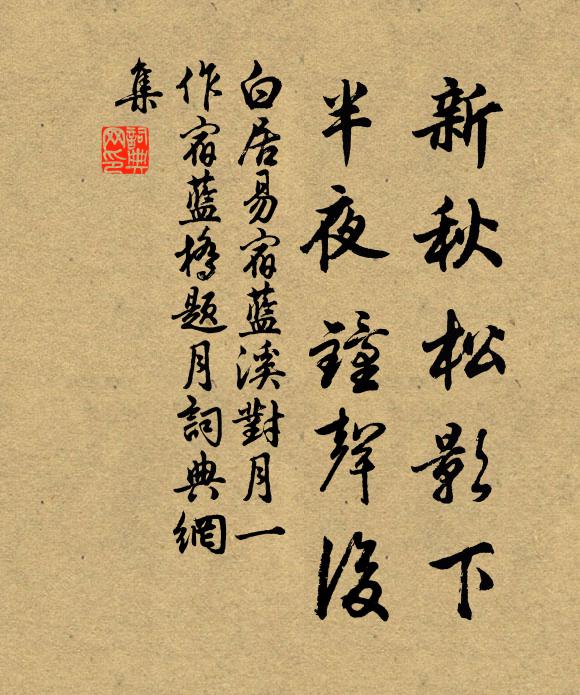 新秋松影下
半夜鐘聲後
白居易宿藍溪對月一
作宿藍橋題月詞典網
集
詞典
网印